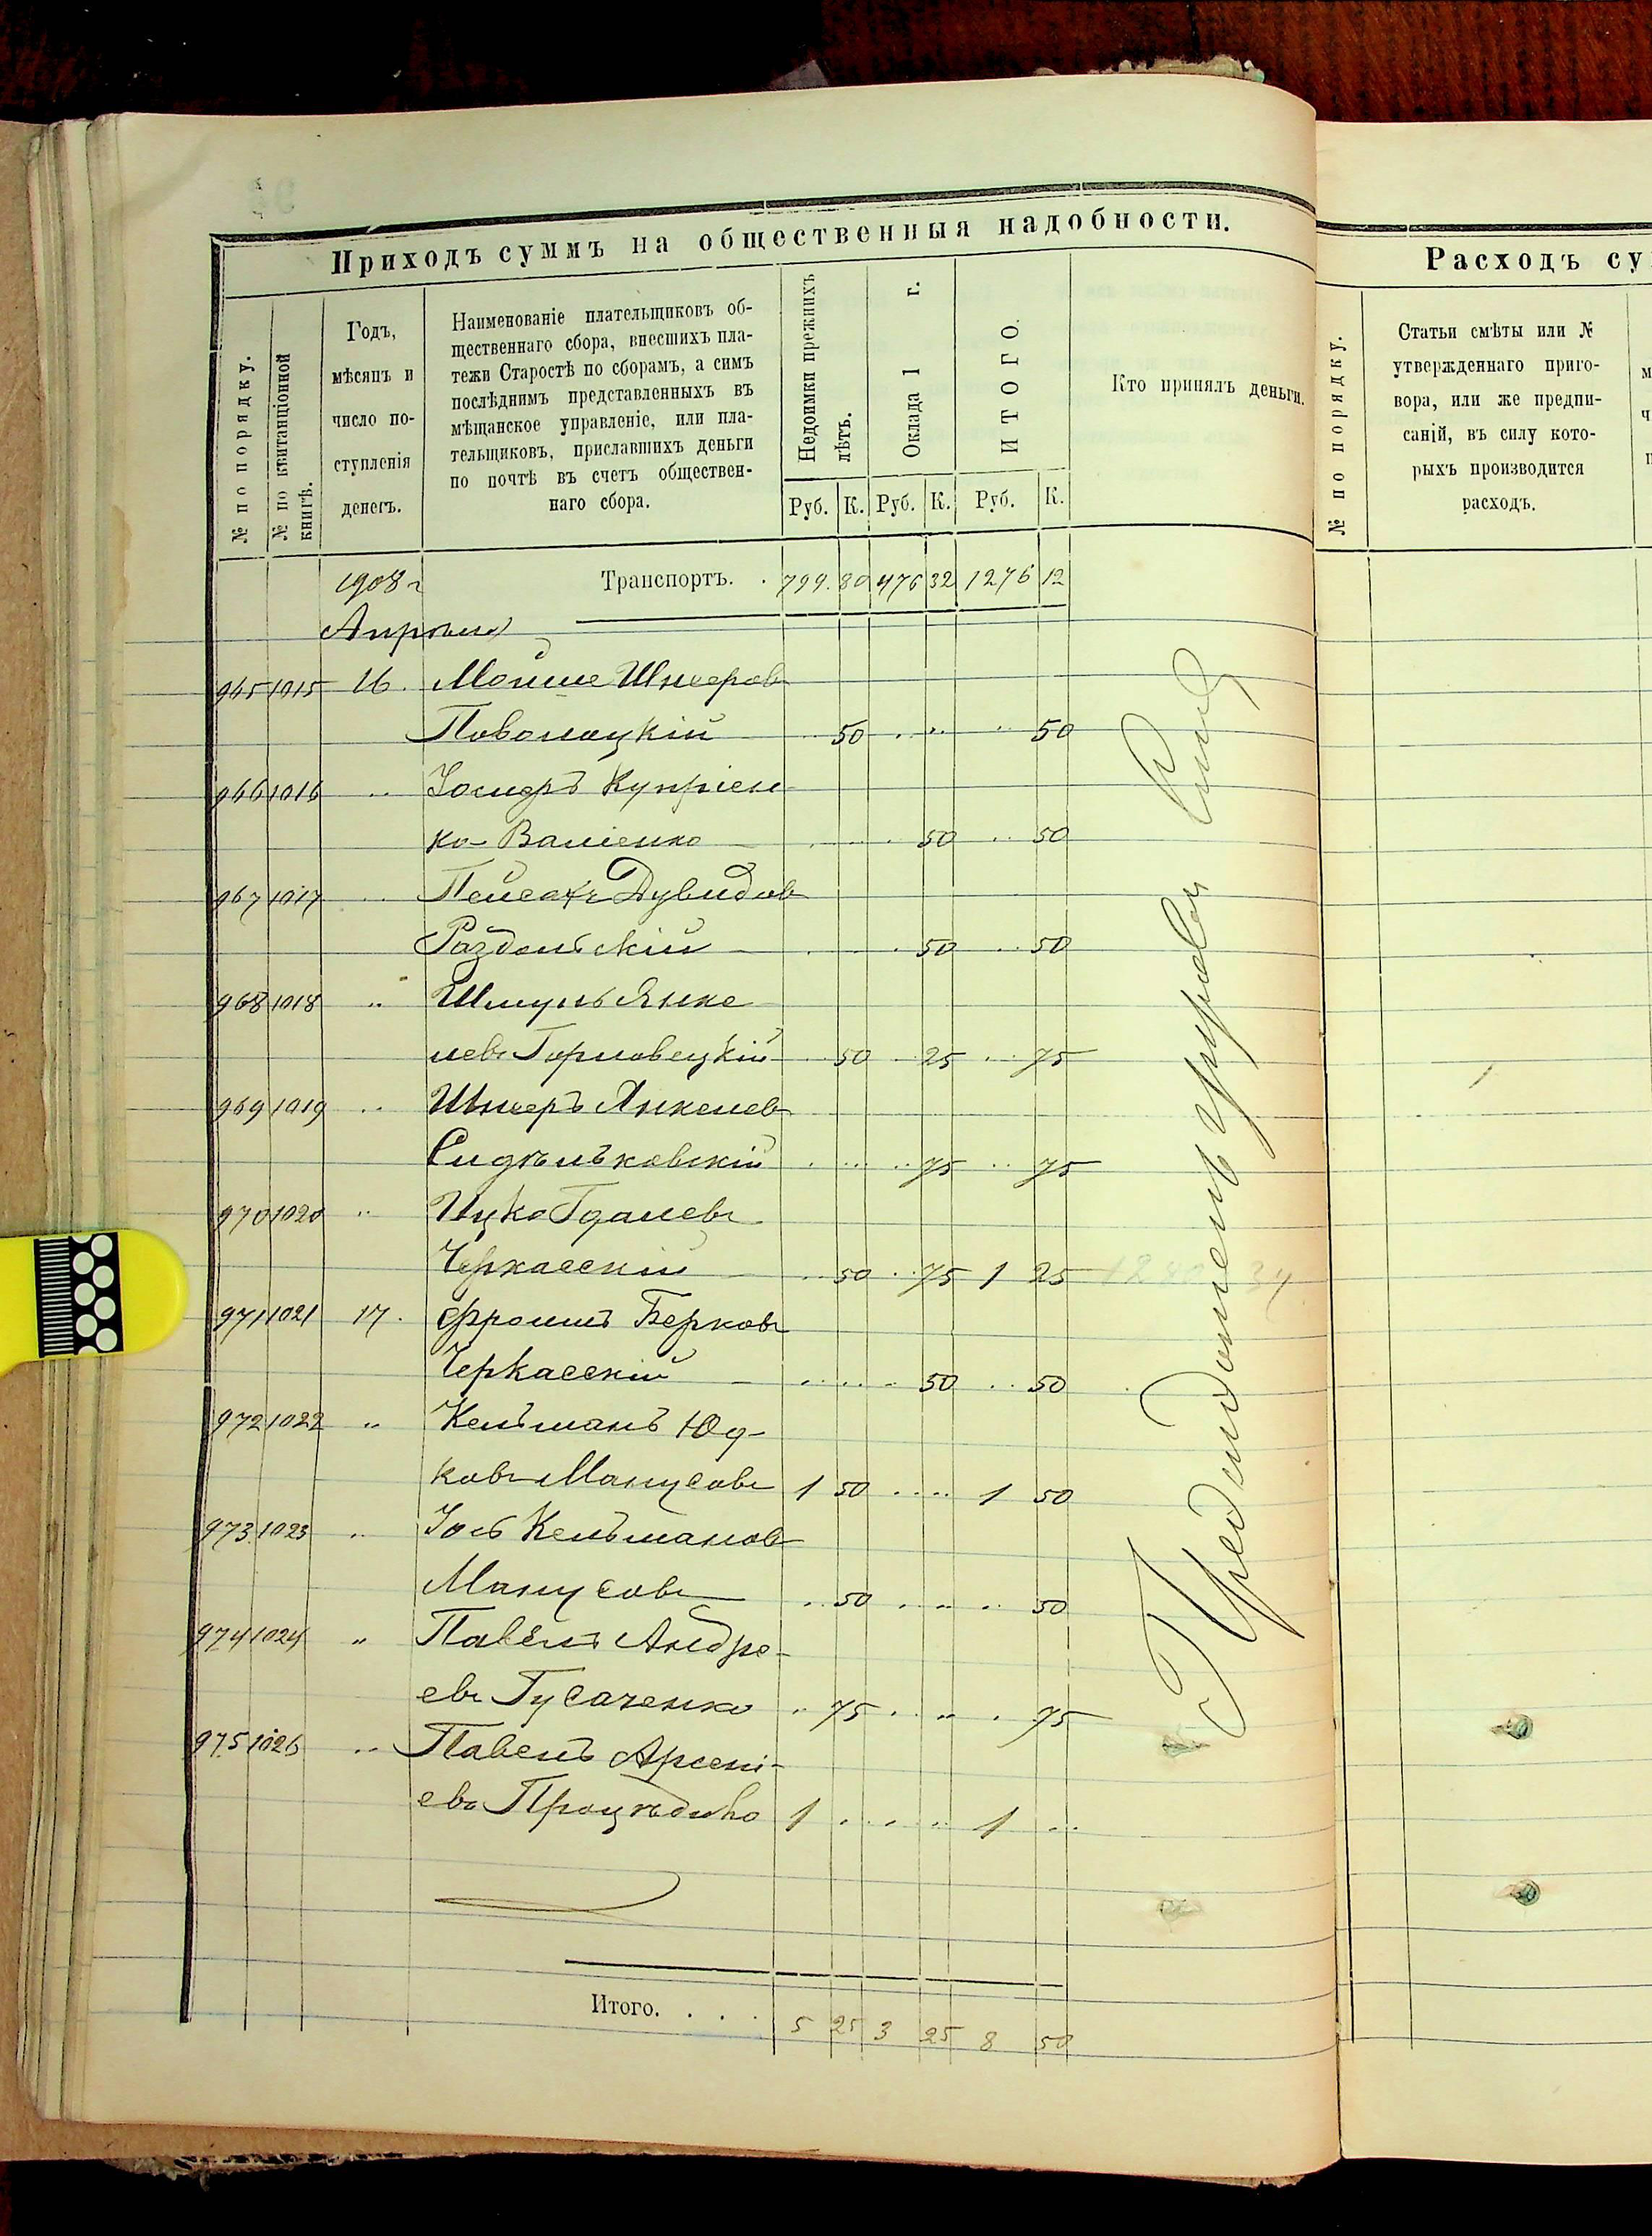 Приходъ суммъ на общественныя надобности.
№ по порядку.
№ по квитанціонной книгѣ.
Годъ,
мѣсяцъ и
число по-
ступленія
денегъ.
Наименованіе плательщиковъ об-
щественнаго сбора, внесшихъ пла-
тежи Старостѣ по сборамъ, а симъ
послѣднимъ представленныхъ въ
мѣщанское управленіе, или пла-
тельщиковъ, приславшихъ деньги
по почтѣ въ счетъ обществен-
наго сбора.
Недоимки прежнихъ лѣтъ.
Оклада 1 г.
ИТОГО.
Кто принялъ деньги.
Руб. К. Руб. К. Руб. К.
1908 г Транспортъ. . 799. 80 476 32 1276 12
Апрѣля
965 1015 16. Мойше Шнееровъ
Поволоцкій 50 .. .. 50
966 1016 .. Іосифъ Купріен
ко-Валіенко 50 .. 50
967 1017 .. Пейсахъ Дувидовъ
Раздольскій 50 .. 50
968 1018 .. Шмуль Янке
левъ Горловецкій 50 25 75
969 1019 .. Шнееръ Янкелевъ
Сидѣльковскій 75 .. 75
970 1020 .. Ицко Гдалевъ
Черкасскій 50 75 1 25
971 1021 17. Фроимъ Берковъ
Черкасскій 50 .. 50
972 1022 .. Кельманъ Юд-
ковъ Манусовъ 1 50 .... 1 50
973 1023 .. Іось Кельмановъ
Манусовъ 50 .. .. 50
974 1024 .. Павелъ Андре-
евъ Гусаченко 75 .. 75
975 1026 .. Павелъ Арсені-
евъ 1 .. .. 1 ..
Итого. . . . 5 25 3 25 8 50
Расходъ су
№ по порядку.
Статьи смѣты или №
утвержденнаго приго-
вора, или же предпи-
саній, въ силу кото-
рыхъ производится
расходъ.